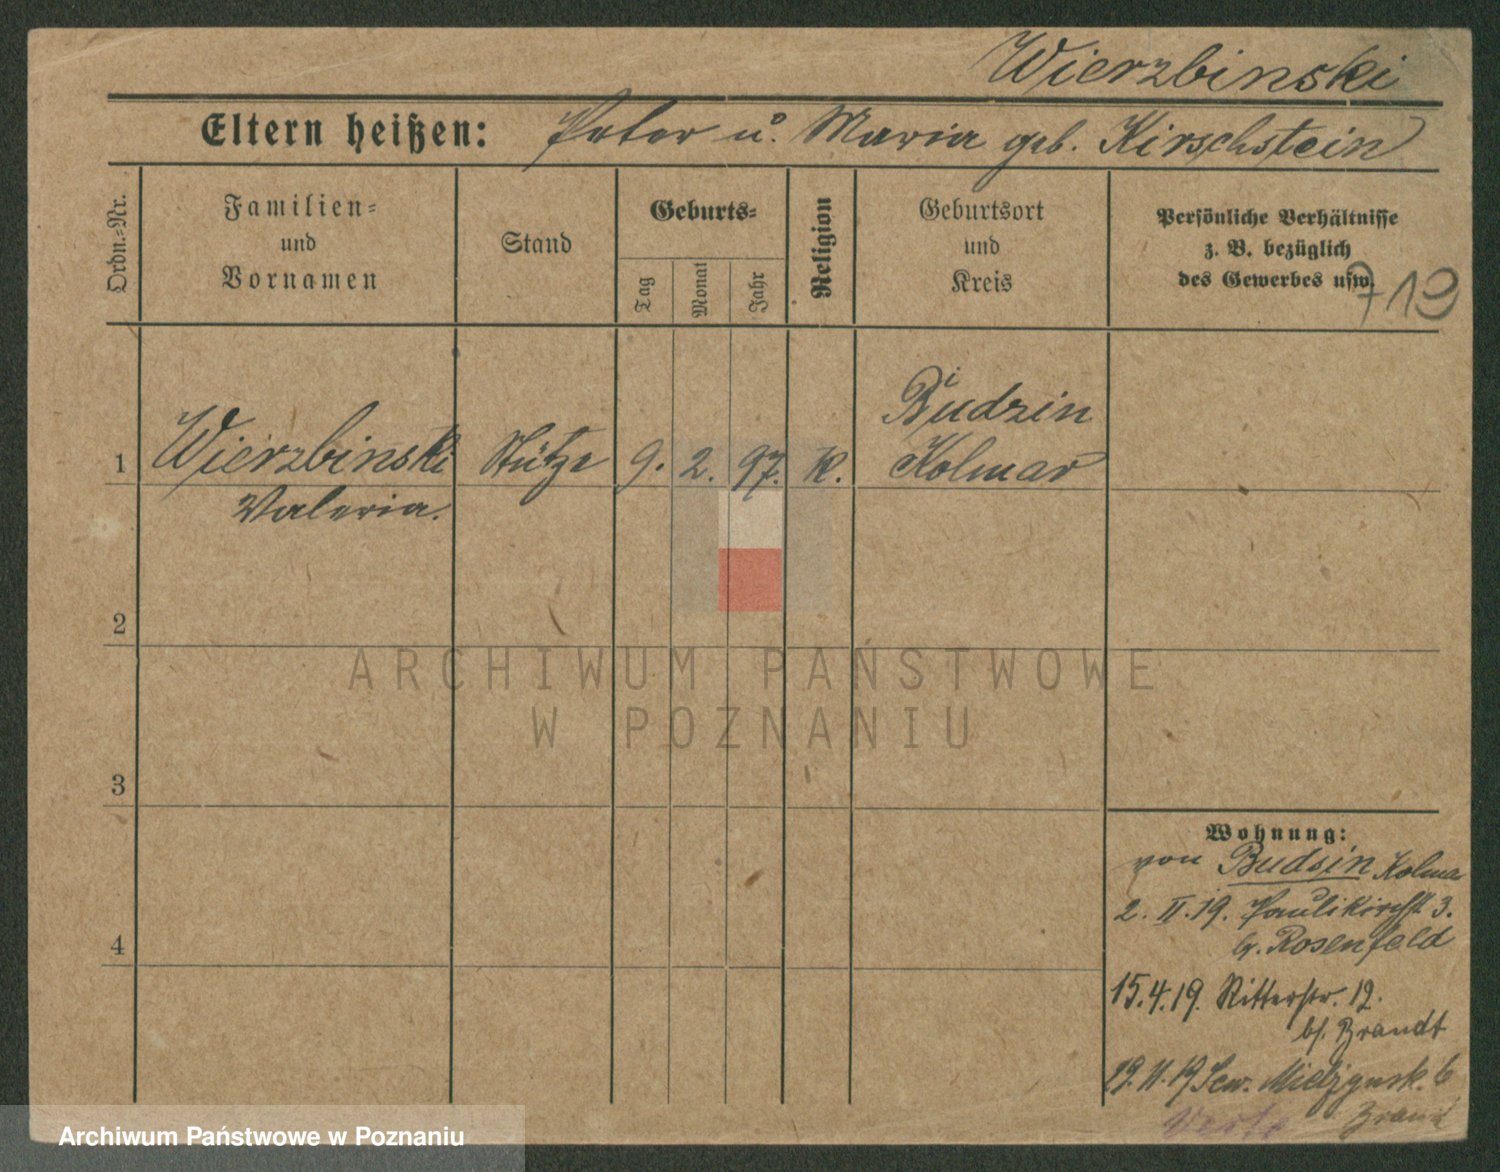 Wierzbinski
Eltern heißen: Peter u. Maria geb. Kirschstein
Ordn.-Nr.
Familien- und Vornamen
Stand
Geburts-
Tag
Monat
Jahr
Religion
Geburtsort und Kreis
Persönliche Verhältnisse
z. B. bezüglich
des Gewerbes usw.
719
Budzin
1 Wierzbinski Stütze 9. 2. 97. K. Kolmar
Valeria.
2
ARCHIWUM PAŃSTWOWE
W POZNANIU
3
Wohnung:
von Budsin Kolma
2. II. 19. Paulikirchst 3.
Rosenfeld
4
15.4.19. Ritterstr. 12.
b/. Brandt
19. 11. 19 Sew. Mielzynsk. 6
Brand
Archiwum Państwowe w Poznaniu